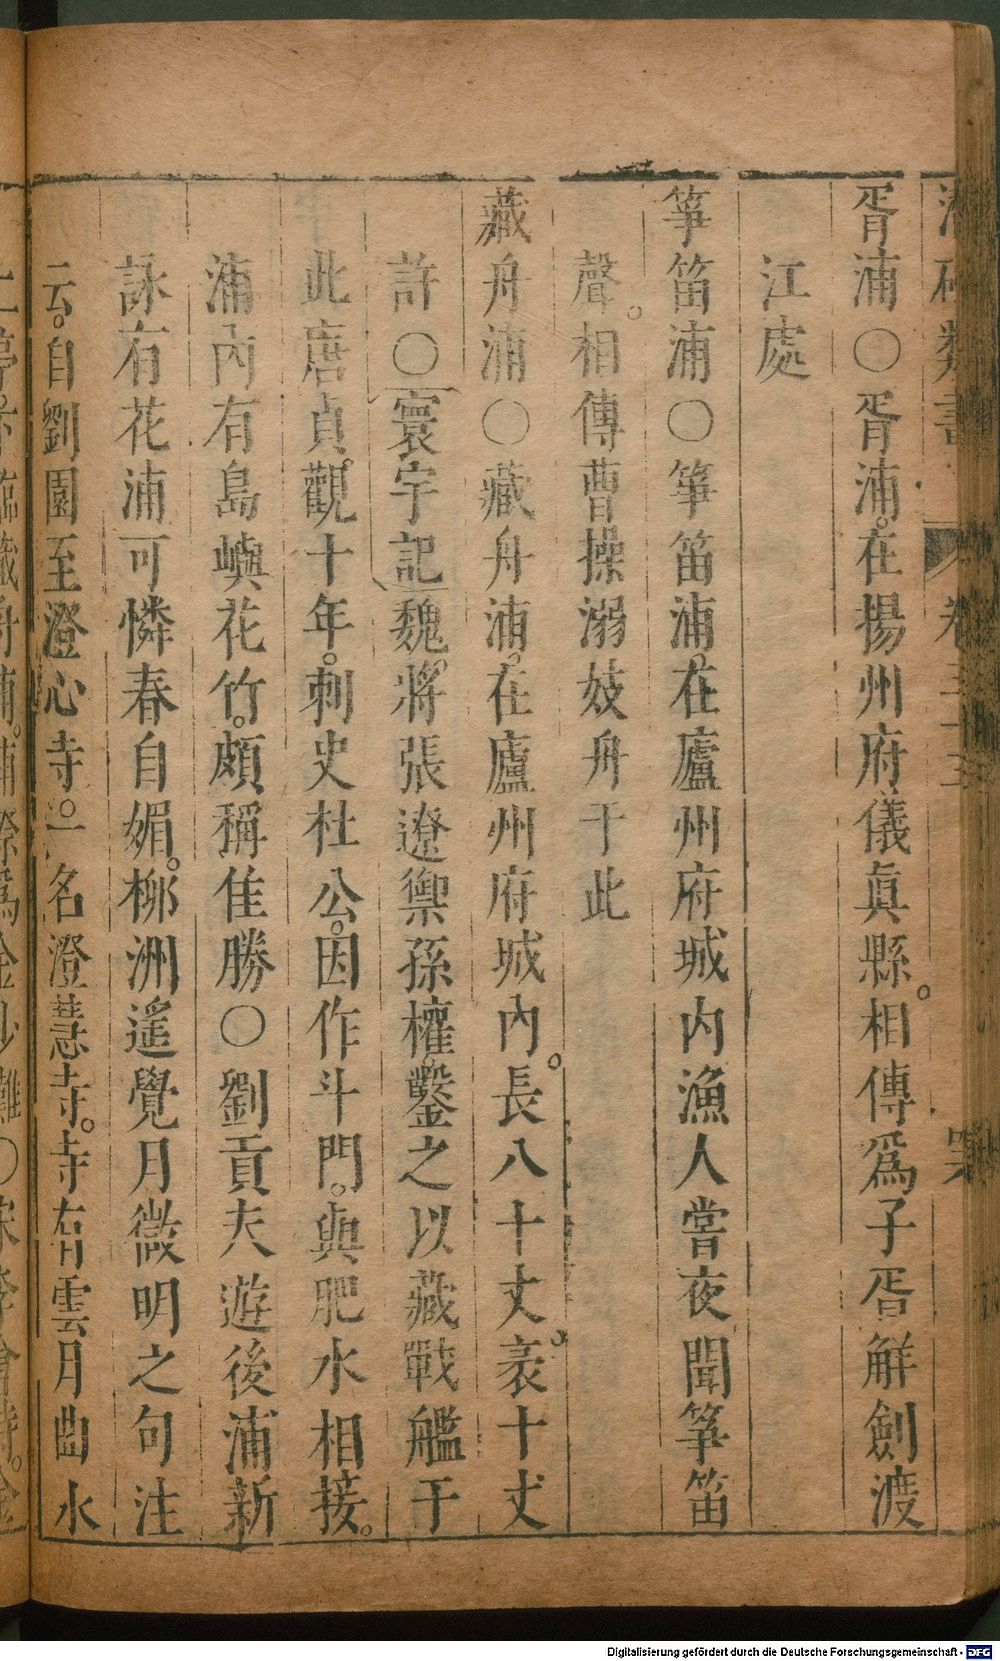 類書
卷三十三
胥浦〇胥浦。在揚州府儀眞縣。相傳爲子胥解劍渡
江處
箏笛浦〇箏笛浦。在廬州府城内漁人嘗夜聞箏笛
聲。相傳曹操溺妓舟于此
藏舟浦〇藏舟浦。在廬州府城內。長八十丈。袤十丈
許〇寰宇記魏。將張遼禦孫權。鑿之以藏戰艦于
此唐貞。觀十年。刺史杜公。因作斗門。與肥水相接。
浦內有島嶼花竹。頗稱佳勝〇劉貢夫遊後浦新
詠有花浦可憐春自媚。柳洲遙覺月微明之句注
云。自劉園至澄心寺。一名澄慧寺。寺有雲月曲水
二亭。亦臨藏舟浦。浦際爲金沙灘〇宋李
Digitalisierung gefördert durch die Deutsche Forschungsgemeinschaft - DFG